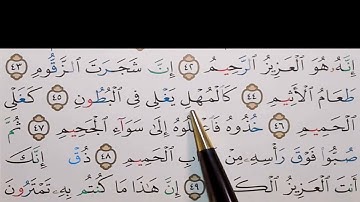 إِنَّهُۥ هُوَ ٱلْعَزِيزُ ٱلرَّحِيمُ ٤٢ إِنَّ شَجَرَتَ ٱلزَّقُّومِ ٤٣
طَعَامُ ٱلْأَثِيمِ ٤٤ كَٱلْمُهْلِ يَغْلِى فِى ٱلْبُطُونِ ٤٥ كَغَلْىِ
ٱلْحَمِيمِ ٤٦ خُذُوهُ إِلَىٰ سَوَآءِ ٱلْجَحِيمِ ٤٧ ثُمَّ
صُبُّوا۟ فَوْقَ رَأْسِهِۦ مِنْ ٱلْحَمِيمِ ٤٨ ذُقْ إِنَّكَ
أَنتَ ٱلْعَزِيزُ ٤٩ إِنَّ هَٰذَا مَا كُنتُم بِهِۦ تَمْتَرُونَ